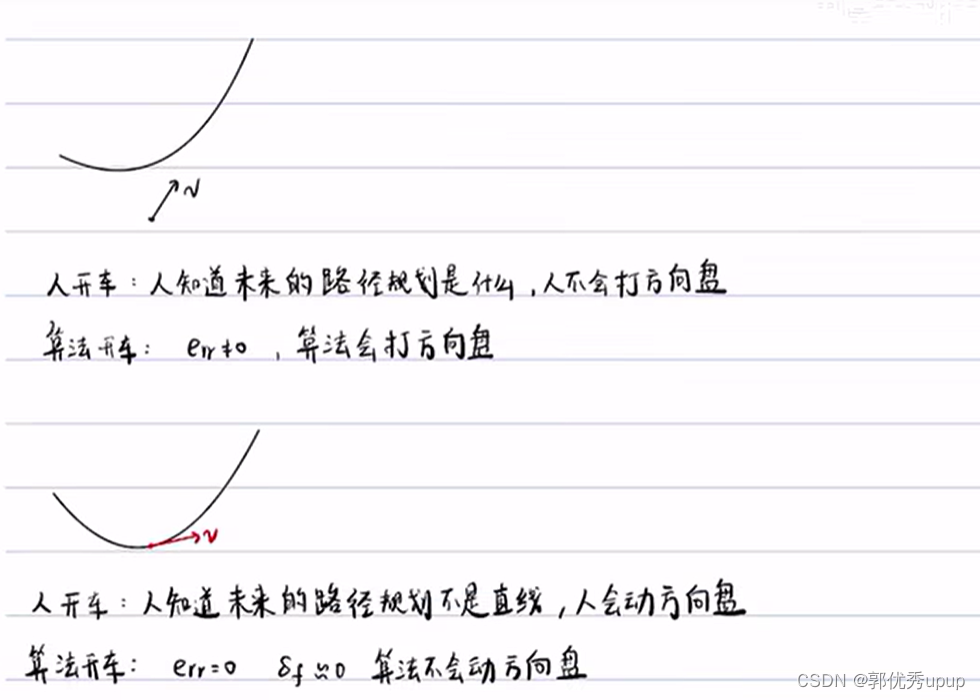 v
人开车：人知道未来的路径规划是什么，人不会打方向盘
算法开车： err≠0 ，算法会打方向盘
v
人开车：人知道未来的路径规划不是直线，人会动方向盘
算法开车： err=0 δf≈0 算法不会动方向盘
CSDN @郭优秀upup